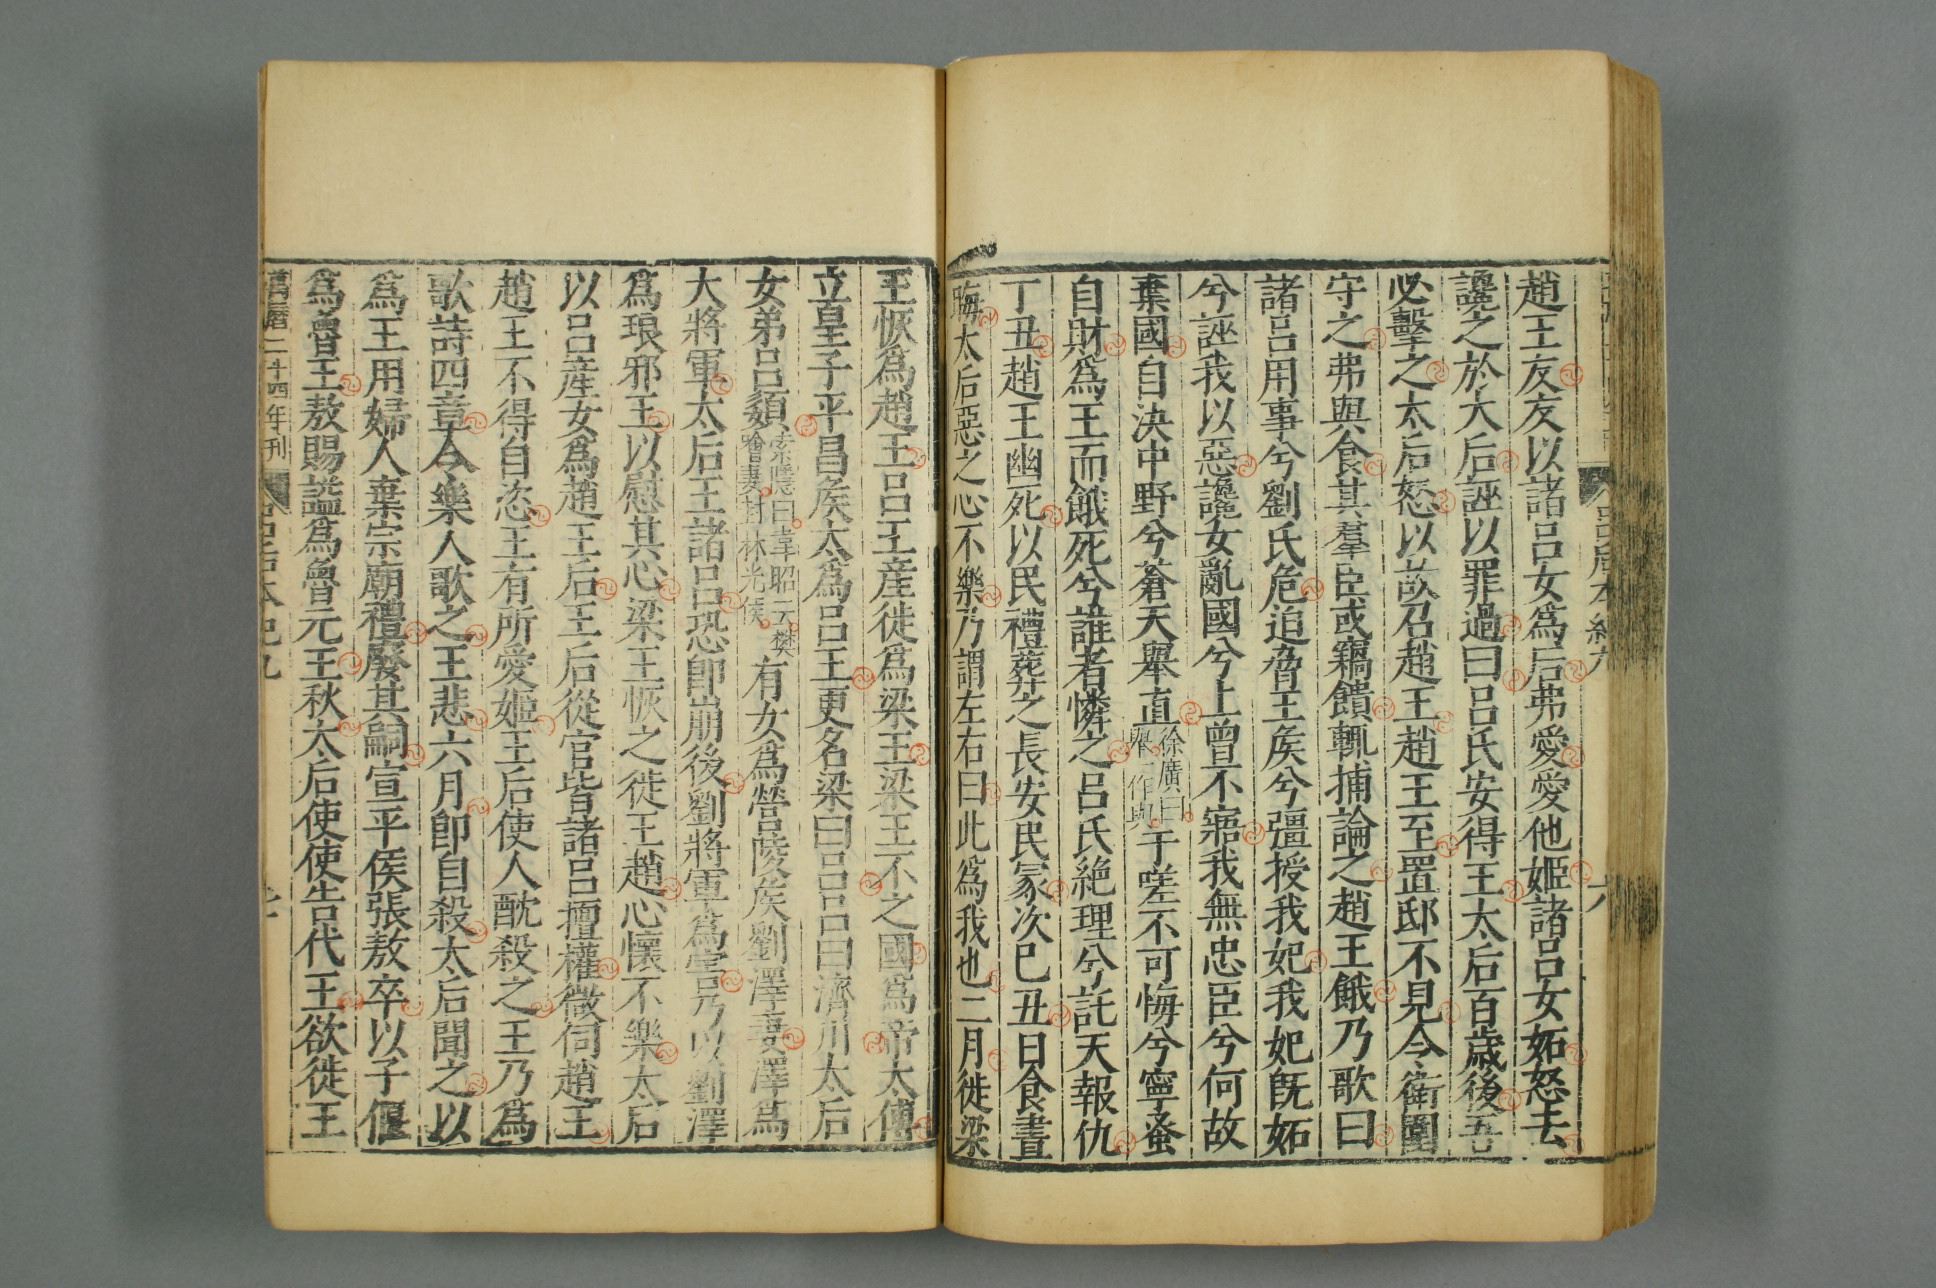 呂后本紀九
六
趙王友友以諸呂女爲后弗愛愛他姬諸呂女妬怒去
讒之於太后誣以罪過曰呂氏安得王太后百歲後吾
必擊之太后怒以故召趙王趙王至置邸不見今衛圍
守之弗與食其羣臣或竊饋輒捕論之趙王餓乃歌曰
諸呂用事兮劉氏危迫脅王矦兮彊授我妃我妃旣妬
兮誣我以惡讒女亂國兮上曾不寤我無忠臣兮何故
棄國自決中野兮蒼天舉直徐廣曰舉一作與于嗟不可悔兮寧蚤
自財爲王而餓死兮誰者憐之呂氏絕理兮託天報仇
丁丑趙王幽死以民禮葬之長安民冢次巳丑日食晝
晦太后惡之心不樂乃謂左右曰此爲我也二月徙梁
王恢爲趙王呂王產徙爲梁王梁王不之國爲帝太傅
立皇子平昌矦太爲呂王更名梁曰呂呂曰濟川太后
女弟呂嬃索隱曰韋昭云樊噲妻封林光侯有女爲營陵矦劉澤妻澤爲
大將軍太后王諸呂恐卽崩後劉將軍爲害乃以劉澤
爲琅邪王以慰其心梁王恢之徙王趙心懷不樂太后
以呂產女爲趙王后王后從官皆諸呂擅權微伺趙王
趙王不得自恣王有所愛姬王后使人酖殺之王乃爲
歌詩四章令樂人歌之王悲六月卽自殺太后聞之以
爲王用婦人棄宗廟禮廢其嗣宣平侯張敖卒以子偃
爲魯王敖賜謚爲魯元王秋太后使使告代王欲徙王
萬曆二十四年刊
呂后本紀九
七